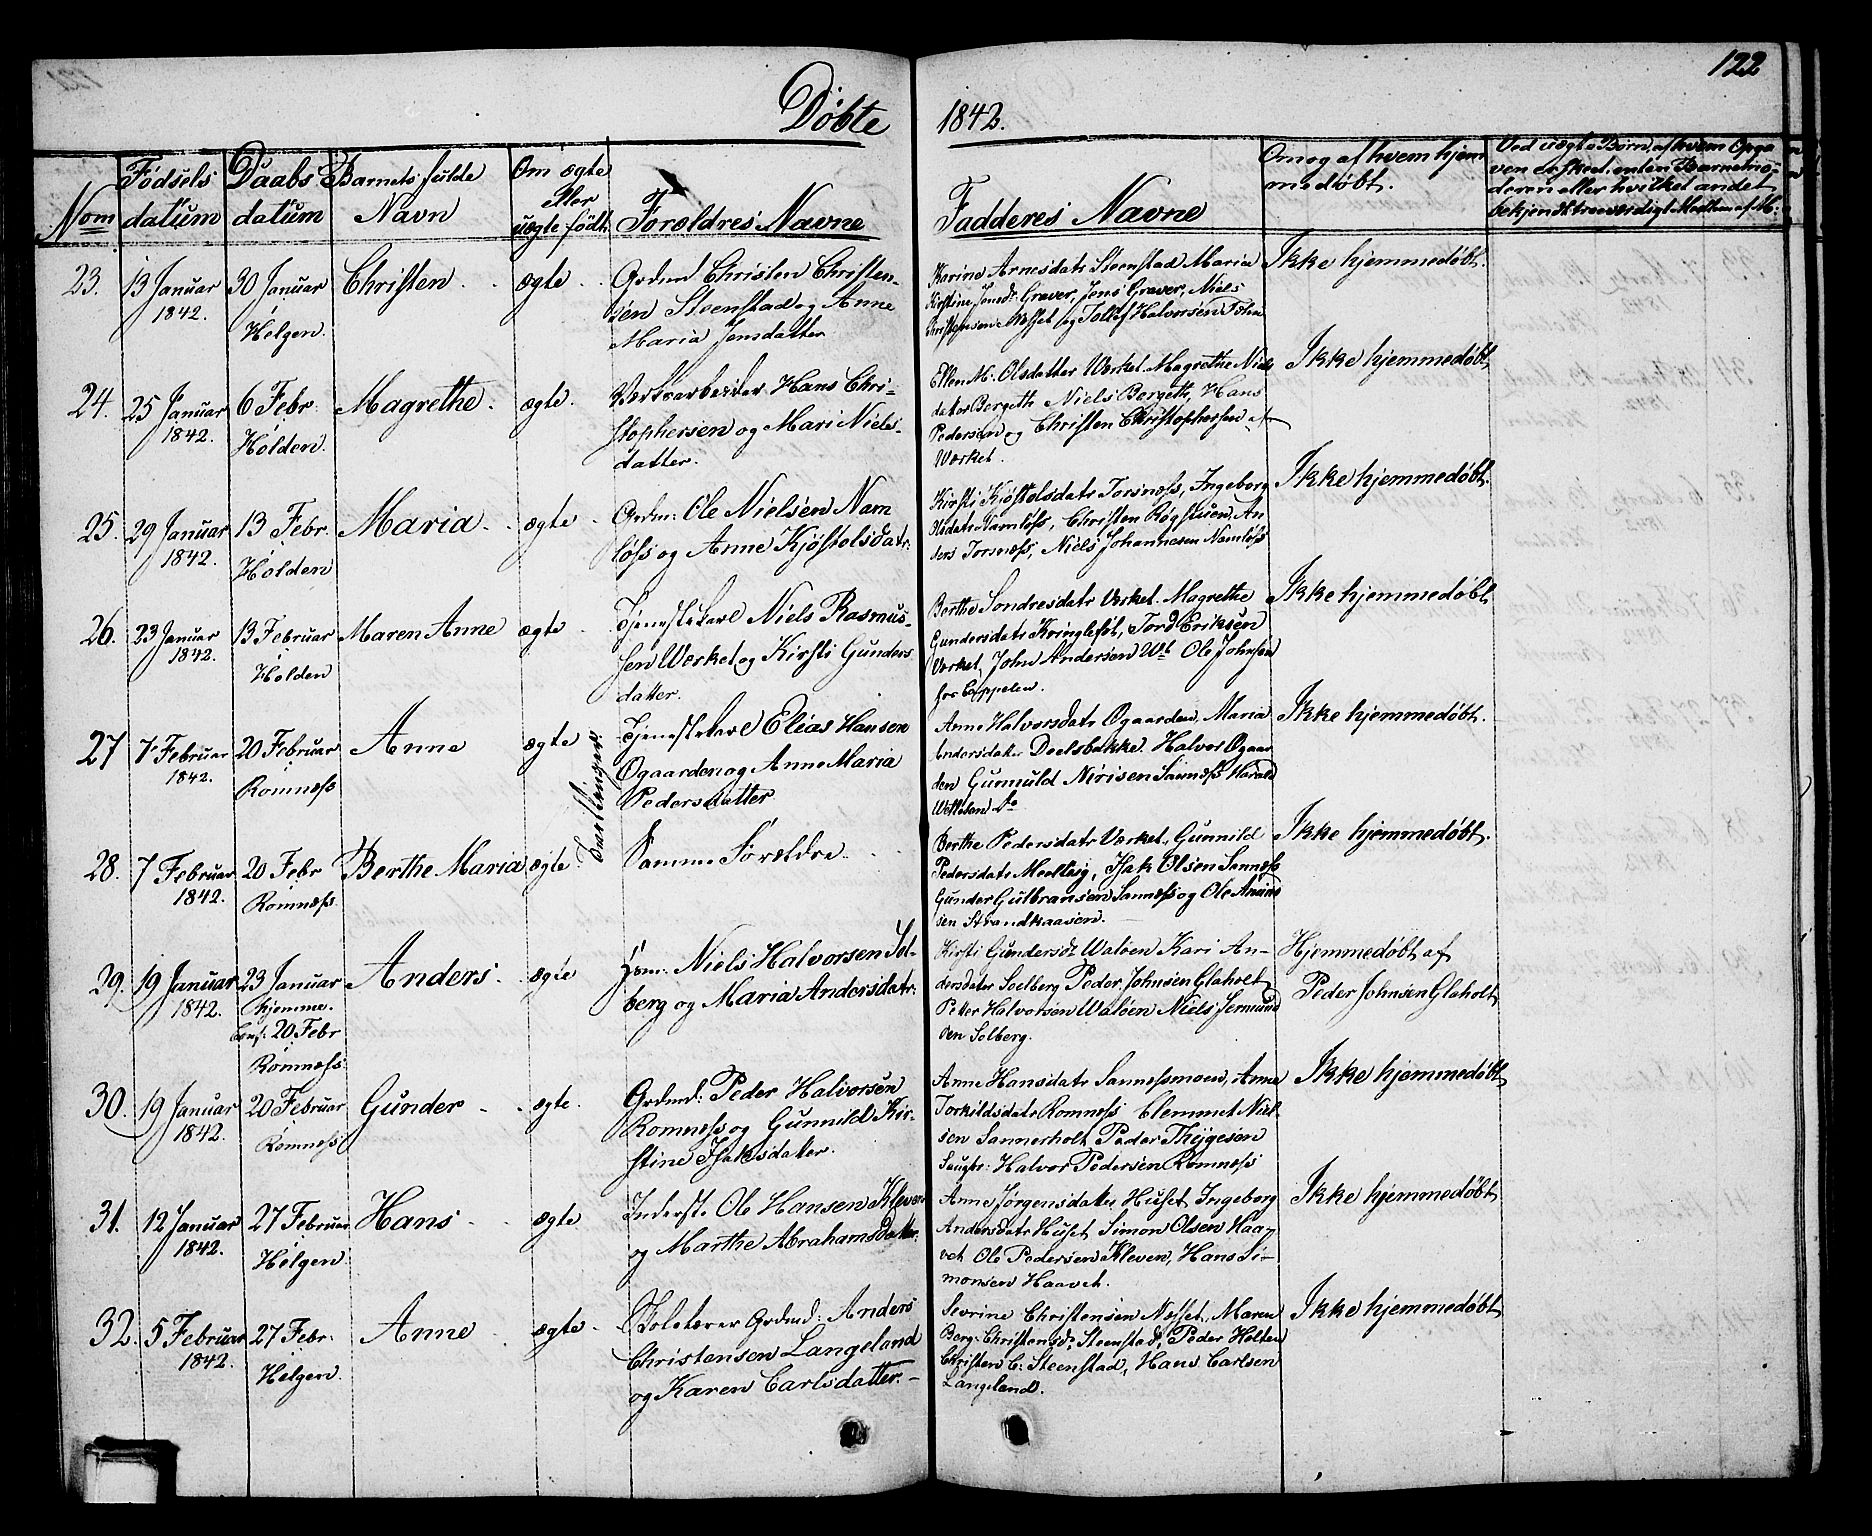 122
Døbte 1842.
Nom
Fødsels datum
Daabs datum
Barnets fulde Navn
Om ægte eller uægte født.
Forældres Navne
Fadderes Navne
Om og af hvem hjemmedøbt.
Ved uægte Børn, af hvem Opgaven er skeet, enten Barnets Moderen eller hvilket andet bekjendt troværdigt Medlem af M:
23. 13 Januar 1842. 30 Januar Helgen. Christen ægte
Grdmd Christen Christen-
sen Steenstad og Anne
Maria Jensdatter
Karine Arnesdatr Steenstad Maria
Kirstine Jensdr Graver, Jens Graver, Niels
Christensen Næsset og Tollef Halvorsen
Ikke hjemmedøbt.
24. 25 Januar 1842. 6 Febr. Holden. Magrethe. ægte.
Værksarbeider Hans Chri-
stophersen og Mari Niels-
datter.
Ellen M: Olsdatter Værket Magrethe Niels
dater Bergeth Niels Bergeth, Hans
Pedersen og Christen Christophersen af
Værket.
Ikke hjemmedøbt
25. 29 Januar 1842. 13 Febr. Holden Maria ægte
Grdm: Ole Nielsen Nam
löss og Anne Kjøstolsdatr:
Kirsti Kjøstolsdatr Torsness, Ingeborg
Olsdatr Namløss, Christen Røgstuen, An
ders Torsness, Niels Johannesen Namløss
Ikke hjemmedøbt.
26. 23 Januar 1842. 13 Februar Holden Maren Anne ægte
Tjenestekarl Niels Rasmus-
sen Værket og Kirsti Gunders
datter.
Berthe Sondresdatr Værket. Magrethe
Gundersdatr Kringlefot, Tord Eriksen
Værket, John Andersen Ole Johnsen
hos Cappelen.
Ikke hjemmedøbt
27 7 Februar 1842. 20 Februar Romness Anne ægte
Tvillinger
Tjenestekarl Elias Hansen
Ogaarden og Anne Maria
Pedersdatter
Anne Halvorsdatr Ogaarden, Maria
Andersdater Doelsbakke. Halvor Ogaar
den Gunnuld Nirisen Sanness Harald
Ikke hjemmedøbt.
28. 7 Februar 1842. 20 Febr Romness. Berthe Maria ægte
Samme Forældre.
Berthe Pedersdatr Værket, Gunnild
Pedersdatr Meeltvig, Isak Olsen Sanness
Gunder Gulbransen Sanness og Ole
sen Strandkaasen.
Ikke hjemmedøbt.
29. 19 Januar 1842. 23 Januar hjemme. Conf: 20 Febr Romness. Anders. ægte
Niels Halvorsen Sol-
berg og Maria Andersdatr:
Kirsti Gundersdr Waløen Kari An-
dersdater Soelberg Peder Johnsen Glaholt
Petter Halvorsen Waløen Niels
den Solberg.
Hjemmedøbt af
Peder Johnsen Glaholt
30. 19 Januar 1842. 20 Februar Romness Gunder ægte.
Grdmd: Peder Halvorsen
Romness og Gunnild Kir-
stine Isaksdatter.
Anne Hansdatr Sannessmoen, Anne
Torkildsdatr Romness Clemmet Niel
sen Sannerholt Peder Thygesen
Saugbr: Halvor Pedersen Romness
Ikke hjemmedøbt
31. 12 Januar 1842. 27 Februar Helgen Hans ægte
Inderst: Ole Hansen Kleven
og Marthe Abrahamsdatter.
Anne Jørgensdatter Huset Ingeborg
Andersdatr Huset Simon Olsen Haa-
vet Ole Pedersen Kleven, Hans Si-
monsen Haavet.
Ikke hjemmedøbt
32. 5 Februar 1842. 27 Febr. Helgen. Anne ægte
Skolelærer Grdmd: Anders
Christensen Langeland
og Karen Carlsdatter.
Sevrine Christensen Næsset, Maren
Berg: Christensdr Steenstad, Peder Holten
Christen C: Steenstad, Hans Carlsen
Langeland.
Ikke hjemmedøbt